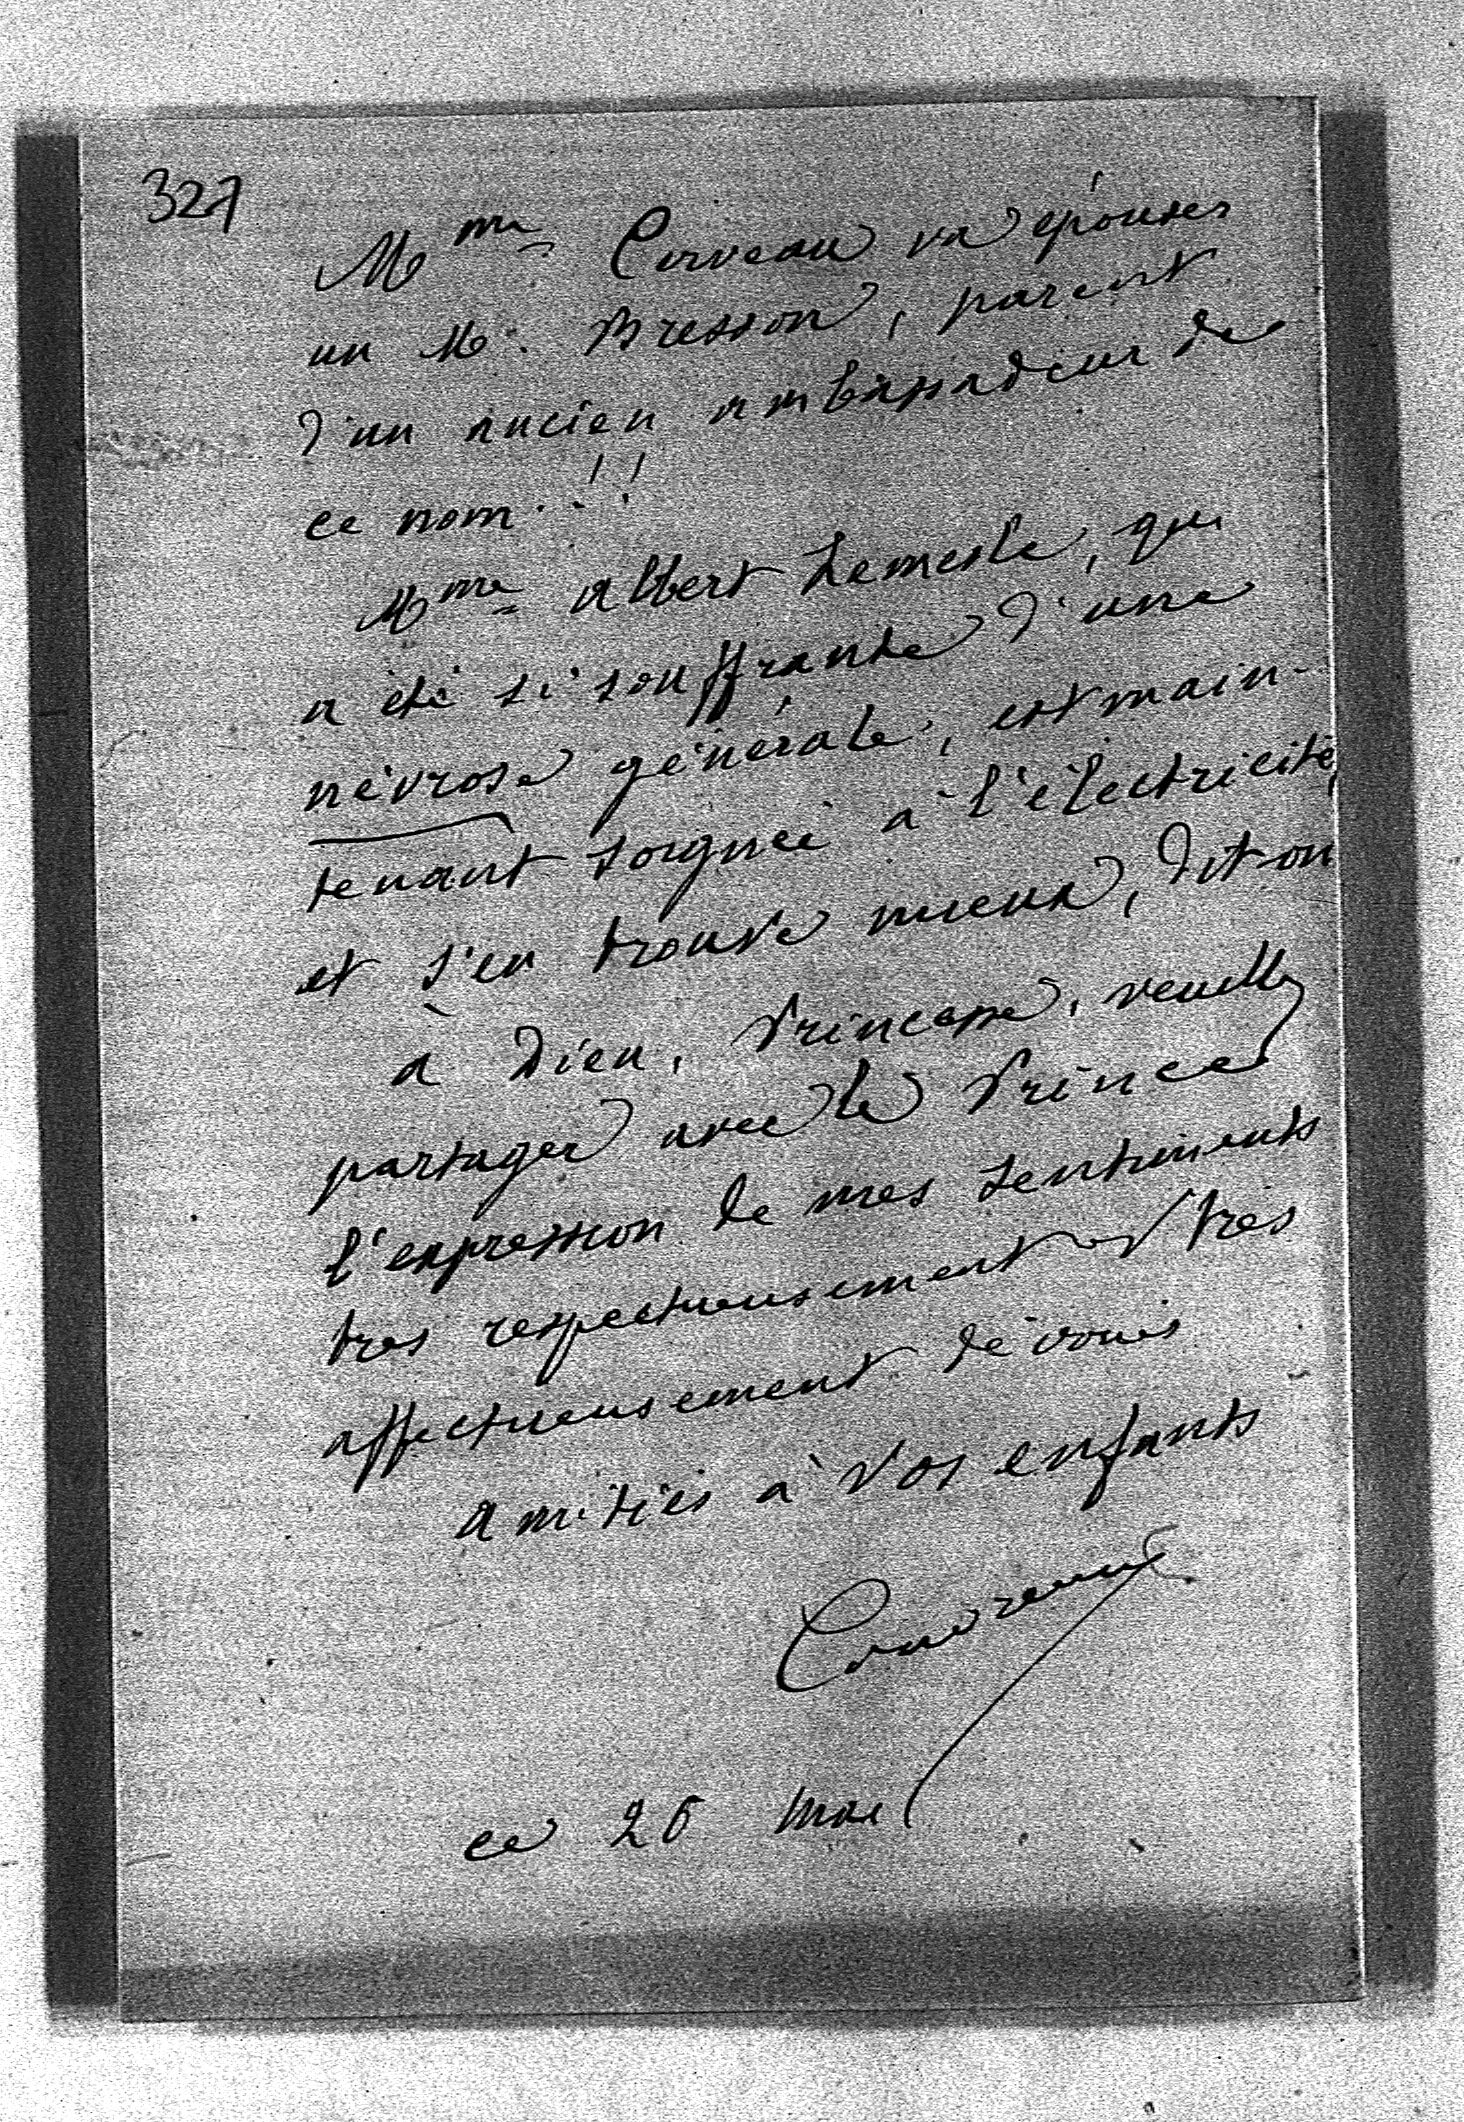 327
Mme Corveau va épouser
un Mr. Bresson, parent
d'un ancien ambassadeur de
ce nom..!!
Mme Albert Lemesle, qui
a été si souffrante d'une
névrose générale, est main-
tenant soignée à l'électricité,
et s'en trouve mieux, dit on
à Dieu, Princesse, veuillez
partager avec le Prince
l'expression de mes sentiments
tres respectueusement et tres
affectueusement dévoués
amitiés à vos enfants
ce 26 mai